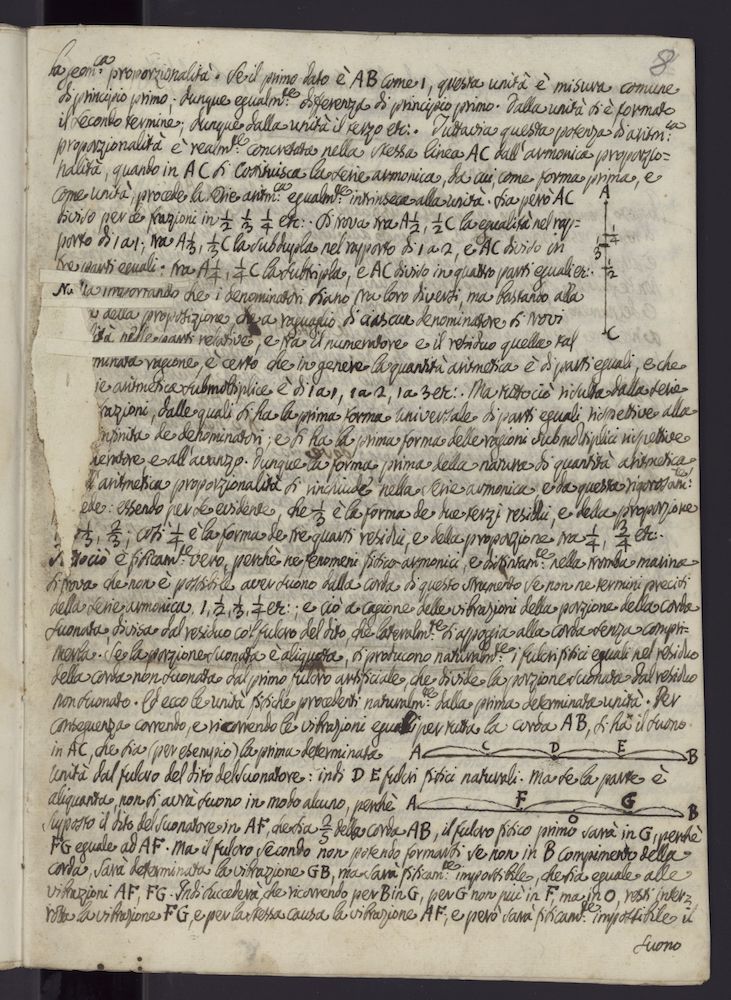 8
la geom.ca proporzionalità. Se il primo dato è AB come 1, questa unità è misura comune
di principio primo; dunque egualm.te differenza di principio primo. Dalla unità si è formato
il secondo termine; dunque dalla unità il terzo etc:. Tuttavia questa potenza di aritm:ca
proporzionalità è realm.te concretata nella stessa linea AC dall'armonica proporzio-
nalità, quando in AC si costituisca la serie armonica, da cui come forma prima, e
come unità, procede la serie aritm.ca egualm.te intrinseca alla unità. Sia però AC
diviso per le frazioni in 1/2 1/3 1/4 etc:. Si trova tra A 1/2, 1/2 C la egualità nel rap-
porto di 1 a 1; tra A 1/3, 1/3 C la subdupla nel rapporto di 1 a 2, e AC diviso in
tre parti eguali. tra A 1/4, 1/4 C la subtripla, e AC diviso in quattro parti eguali etc:.
A
1/4
1/3
1/2
C
N importando che i denominatori siano tra loro diversi, ma bastando alla
della proposizione che a ragguaglio di ciascun denominatore si trovi
lità nelle parti relative, e tra il numeratore e il residuo quella tal
minata ragione, è certo che in genere la quantità aritmetica è di parti eguali, e che
ie aritmetica submoltiplice è di 1 a 1, 1 a 2, 1 a 3 etc:. Ma tutto ciò risulta dalla serie
frazioni, dalle quali si ha la prima forma universale di parti eguali rispettive alla
infinita de denominatori; e si ha la prima forma delle ragioni submoltiplici rispettive
neratore e all'avanzo. Dunque la forma prima della natura di quantità aritmetica
d'aritmetica proporzionalità si rinchiude nella serie armonica e da questa rigorosam:te
ede: essendo per se evidente, che 1/3 è la forma de due terzi residui, e della proporzione
1/3, 2/3; così 1/4 è la forma de tre quarti residui, e della proporzione tra 1/4, 3/4 etc:.
tociò è fisicam.te vero, perchè ne fenomeni fisico-armonici, e distintam.te nella tromba marina
si trova che non è possibile aver suono dalla corda di questo strumento se non ne termini precisi
della serie armonica 1, 1/2, 1/3, 1/4 etc:; e ciò a cagione delle vibrazioni della porzione della corda
suonata, divisa dal residuo col fulcro del dito, che lateralm.te si appoggia alla corda senza compri-
merla. Se la porzione suonata è aliquota, si producono naturalm.te i fulcri fisici eguali nel residuo
della corda non suonata dal primo fulcro artificiale, che divide la porzione suonata dal residuo
non suonato. Ed ecco le unità fisiche procedenti naturalm.te dalla prima determinata unità. Per
conseguenza correndo, e ricorrendo le vibrazioni eguali per tutta la corda AB, si ha il suono
in AC, che sia (per esempio) la prima determinata
A C D E B
unità dal fulcro del dito del suonatore: indi D E fulcri fisici naturali. Ma se la parte è
aliquanta, non si avrà suono in modo alcuno, perchè
A F G B
O
supposto il dito del suonatore in AF, che sia 2/5 della corda AB, il fulcro fisico primo sarà in G, perchè
FG eguale ad AF. Ma il fulcro secondo non potendo formarsi se non in B compimento della
corda, sarà determinata la vibrazione GB, ma sarà fisicam.te impossibile, che sia eguale alle
vibrazioni AF, FG. Indi succederà che ricorrendo per B in G, per G non più in F, ma in O, resti inter-
rotta la vibrazione FG, e per la stessa causa la vibrazione AF, e però sarà fisicam.te impossibile il
suono